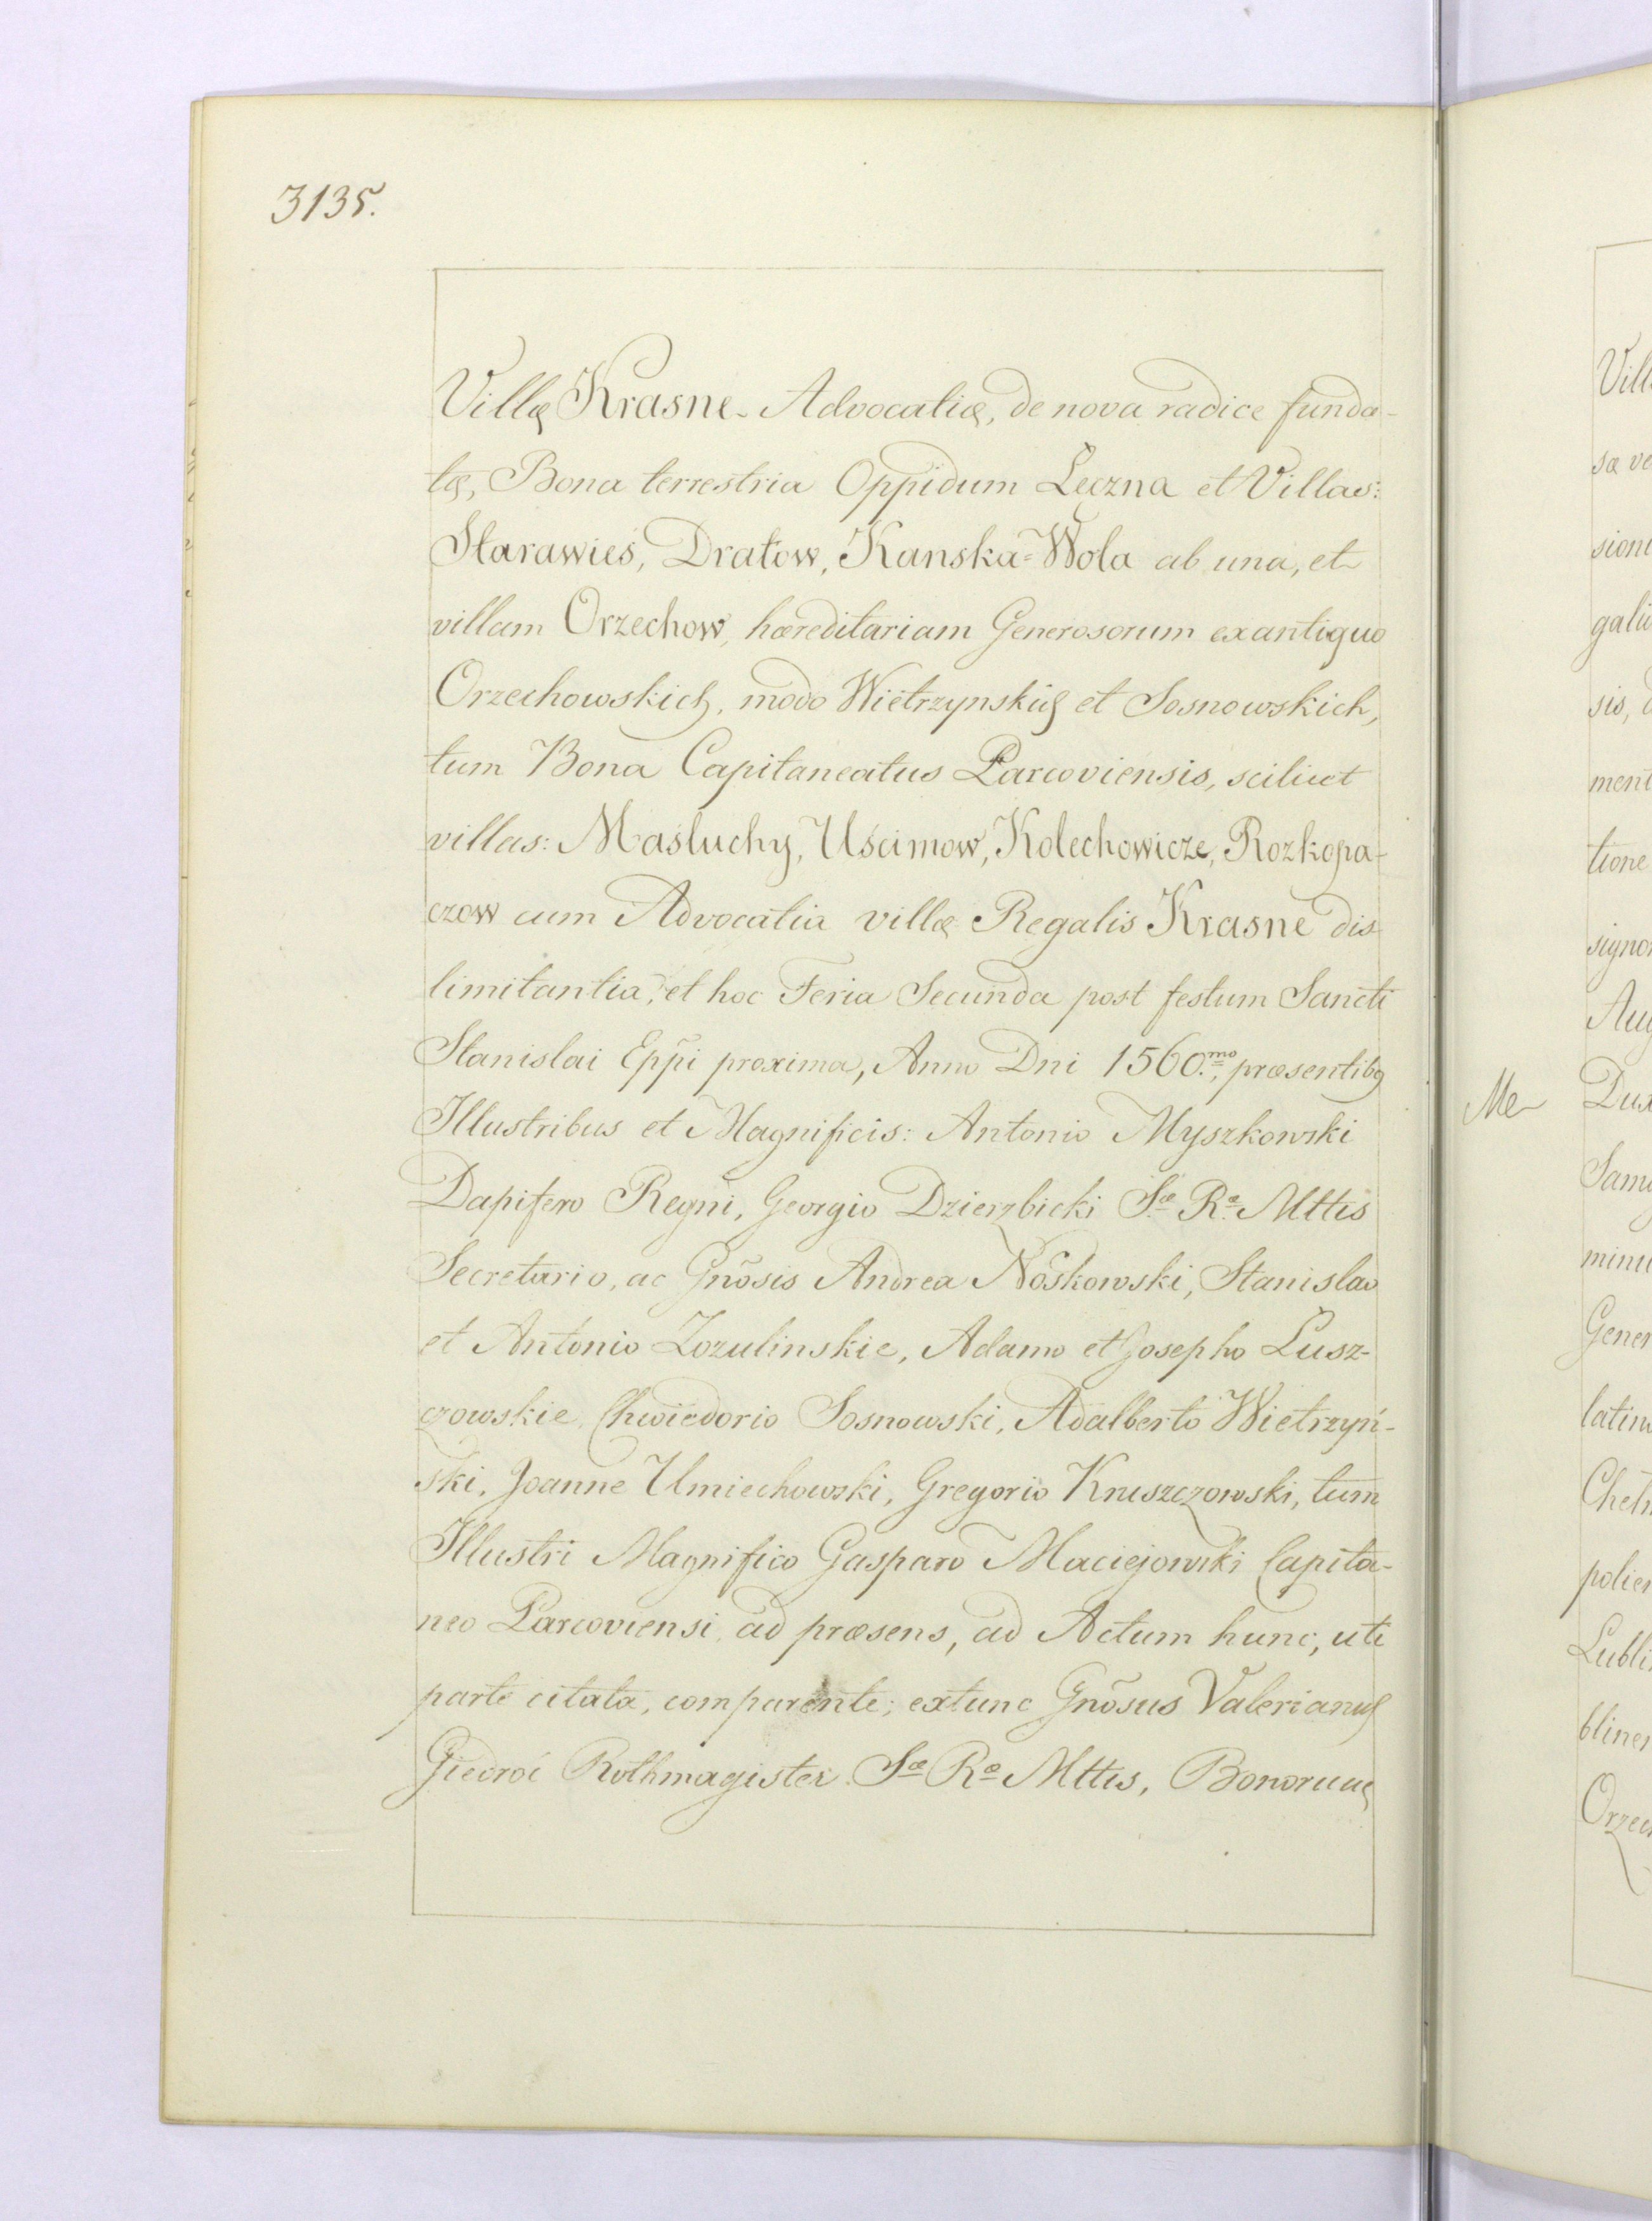 3135.
Villæ Krasne Advocatiæ, de nova radice funda-
tæ, Bona terrestria Oppidum Łęczna et Villas:
Starawieś, Dratow, Kanska=Wola ab una, et
villam Orzechow, hæreditariam Generosorum ex antiquo
Orzechowskich, modo Wietrzynskich et Sosnowskich,
tum Bona Capitaneatus Parcoviensis, scilicet
villas: Maśluchy, Uścimow, Kolechowicze, Rozkopa-
czow cum Advocatia villæ Regalis Krasne dis-
limitantia, et hoc Feria Secunda post festum Sancti
Stanislai Eppi proxima, Anno Dni 1560.mo, præsentibq
Illustribus et Magnificis: Antonio Myszkowski
Dapifero Regni, Georgio Dzierzbicki Sæ Ræ Mttis
Secretario, ac Gnõsis Andrea Noskowski, Stanislao
et Antonio Zozulinskie, Adamo et Josepho Lusz-
czowskie, Chwiedorio Sosnowski, Adalberto Wietrzyń-
ski, Joanne Umiechowski, Gregorio Kruszczowski, tum
Illustri Magnifico Gasparo Maciejowski Capita-
neo Parcoviensi, ad præsens, ad Actum hunc, uti
parte citata, comparente; extunc Gnõsus Valerianus
Giedroć Rothmagister Sæ Ræ Mttis, Bonorum
Me
Vill
sæ ve
sioni
galiu
sis,
ment
tione
signo
Aug
Dux
Sam
minu
Gener
latin
Cheł
polien
Lubli
bliner
Orzec